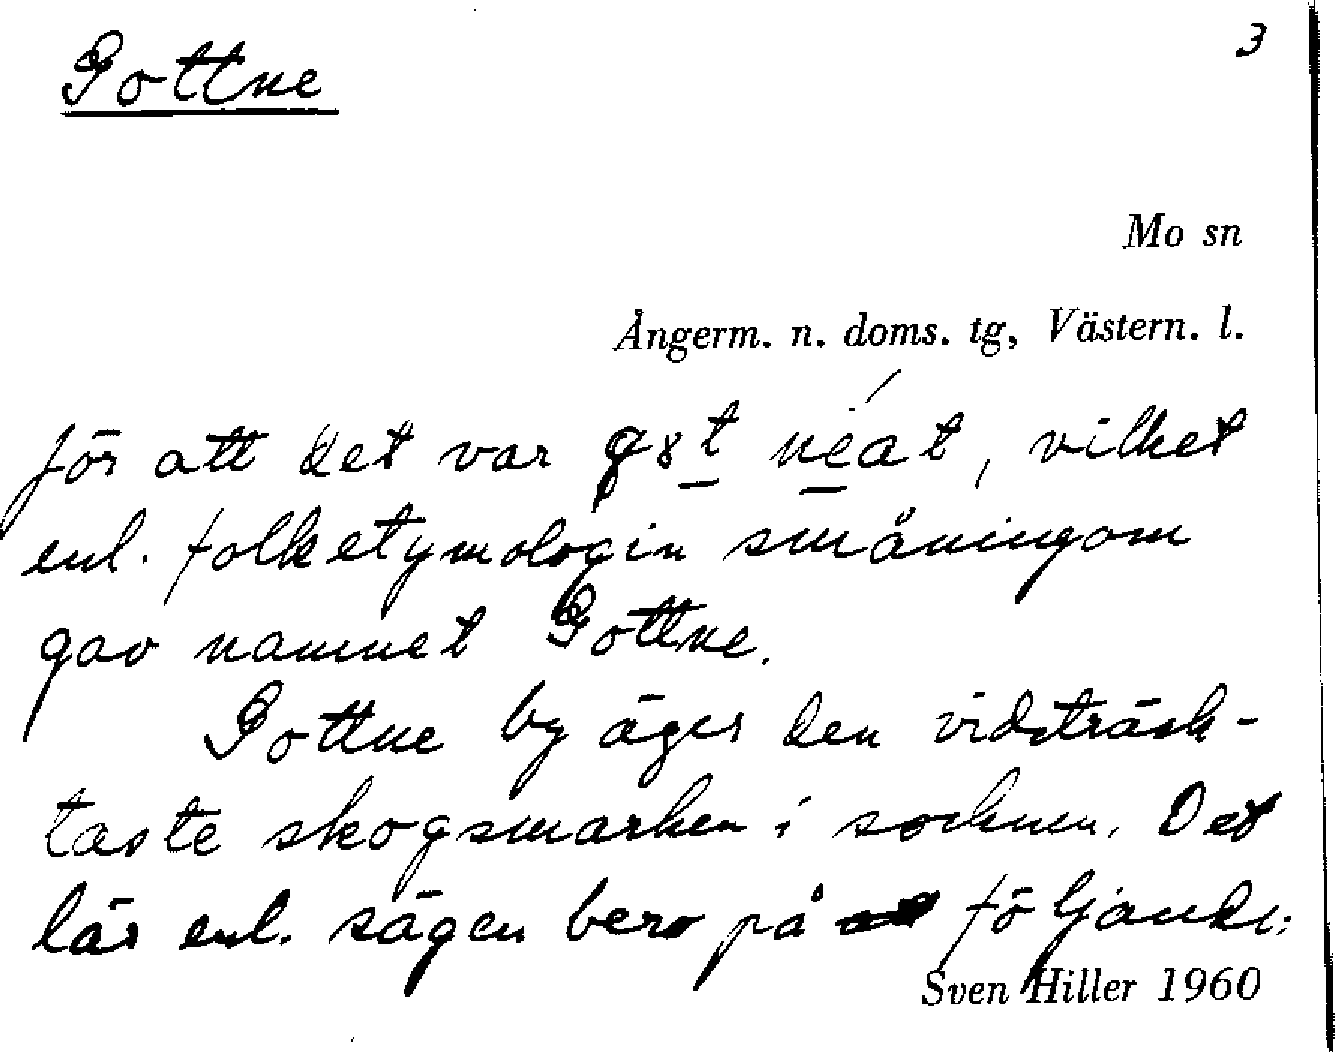 Gottne
3
Mo sn
Ångerm. n. doms. tg, Västern. l.
för att det var vilket
enl. folketymologin småningom
gav namnet Gottne.
Gottne by äger den vidsträck-
taste skogsmarken i socknen. Det
lär enl. sägen bero på följande:
Sven Hiller 1960